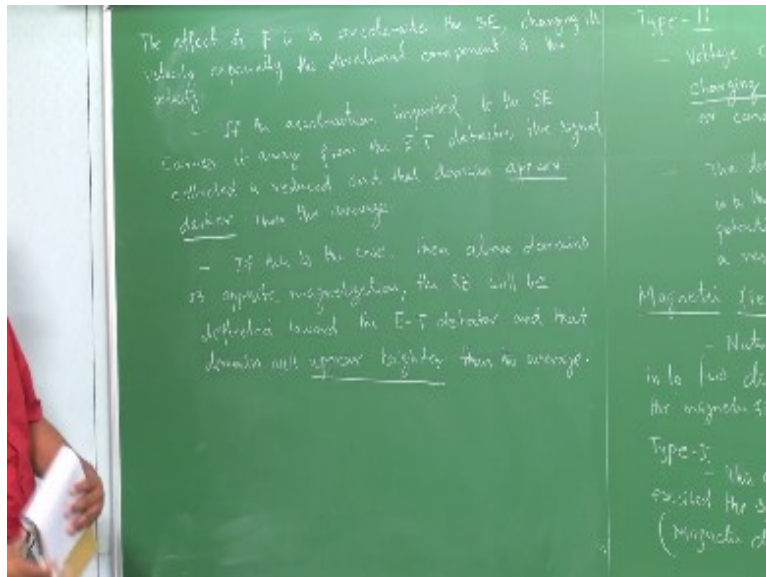 The effect of F is to accelerate the SE, changing its
velocity especially the directional component of the
velocity
- If the acceleration imparted to the SE
carries it away from the E-T detector, the signal
collected is reduced and that domain appears
darker than the average.
- If this is the case, then above domains
of opposite magnetization, the SE will be
deflected toward the E-T detector and that
domain will appear brighter than the average.
Type-II
- Voltage
changing
or
- The
is to the
a
Magnetic
- Natu
in to two
the magnetic
Type-I
- This
excited the
(Magnetic